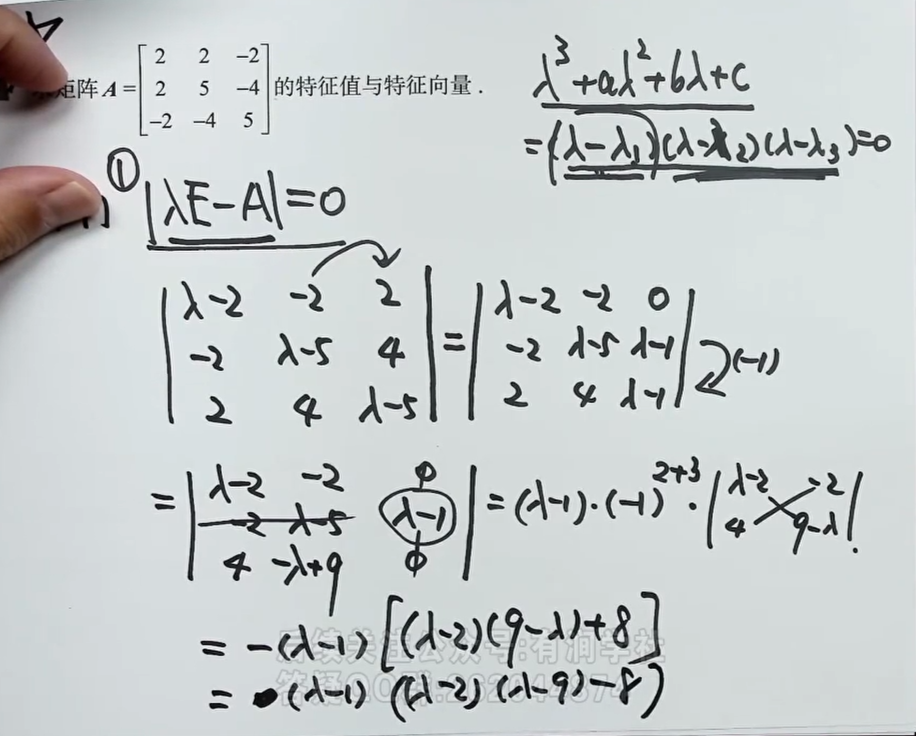 矩阵 A = [2 2 −2; 2 5 −4; −2 −4 5] 的特征值与特征向量.
λ³+aλ²+bλ+c
=(λ−λ₁)(λ−λ₂)(λ−λ₃)=0
① |λE−A|=0
|λ−2 −2 2; −2 λ−5 4; 2 4 λ−5| = |λ−2 −2 0; −2 λ−5 λ−1; 2 4 λ−1| (−1)
= |λ−2 −2 0; −2 λ−5 λ−1; 4 −λ+9 0| = (λ−1)·(−1)²⁺³·|λ−2 −2; 4 9−λ|.
= −(λ−1)[(λ−2)(9−λ)+8]
= (λ−1)((λ−2)(λ−9)−8)
后续关注公众号:有涧学社